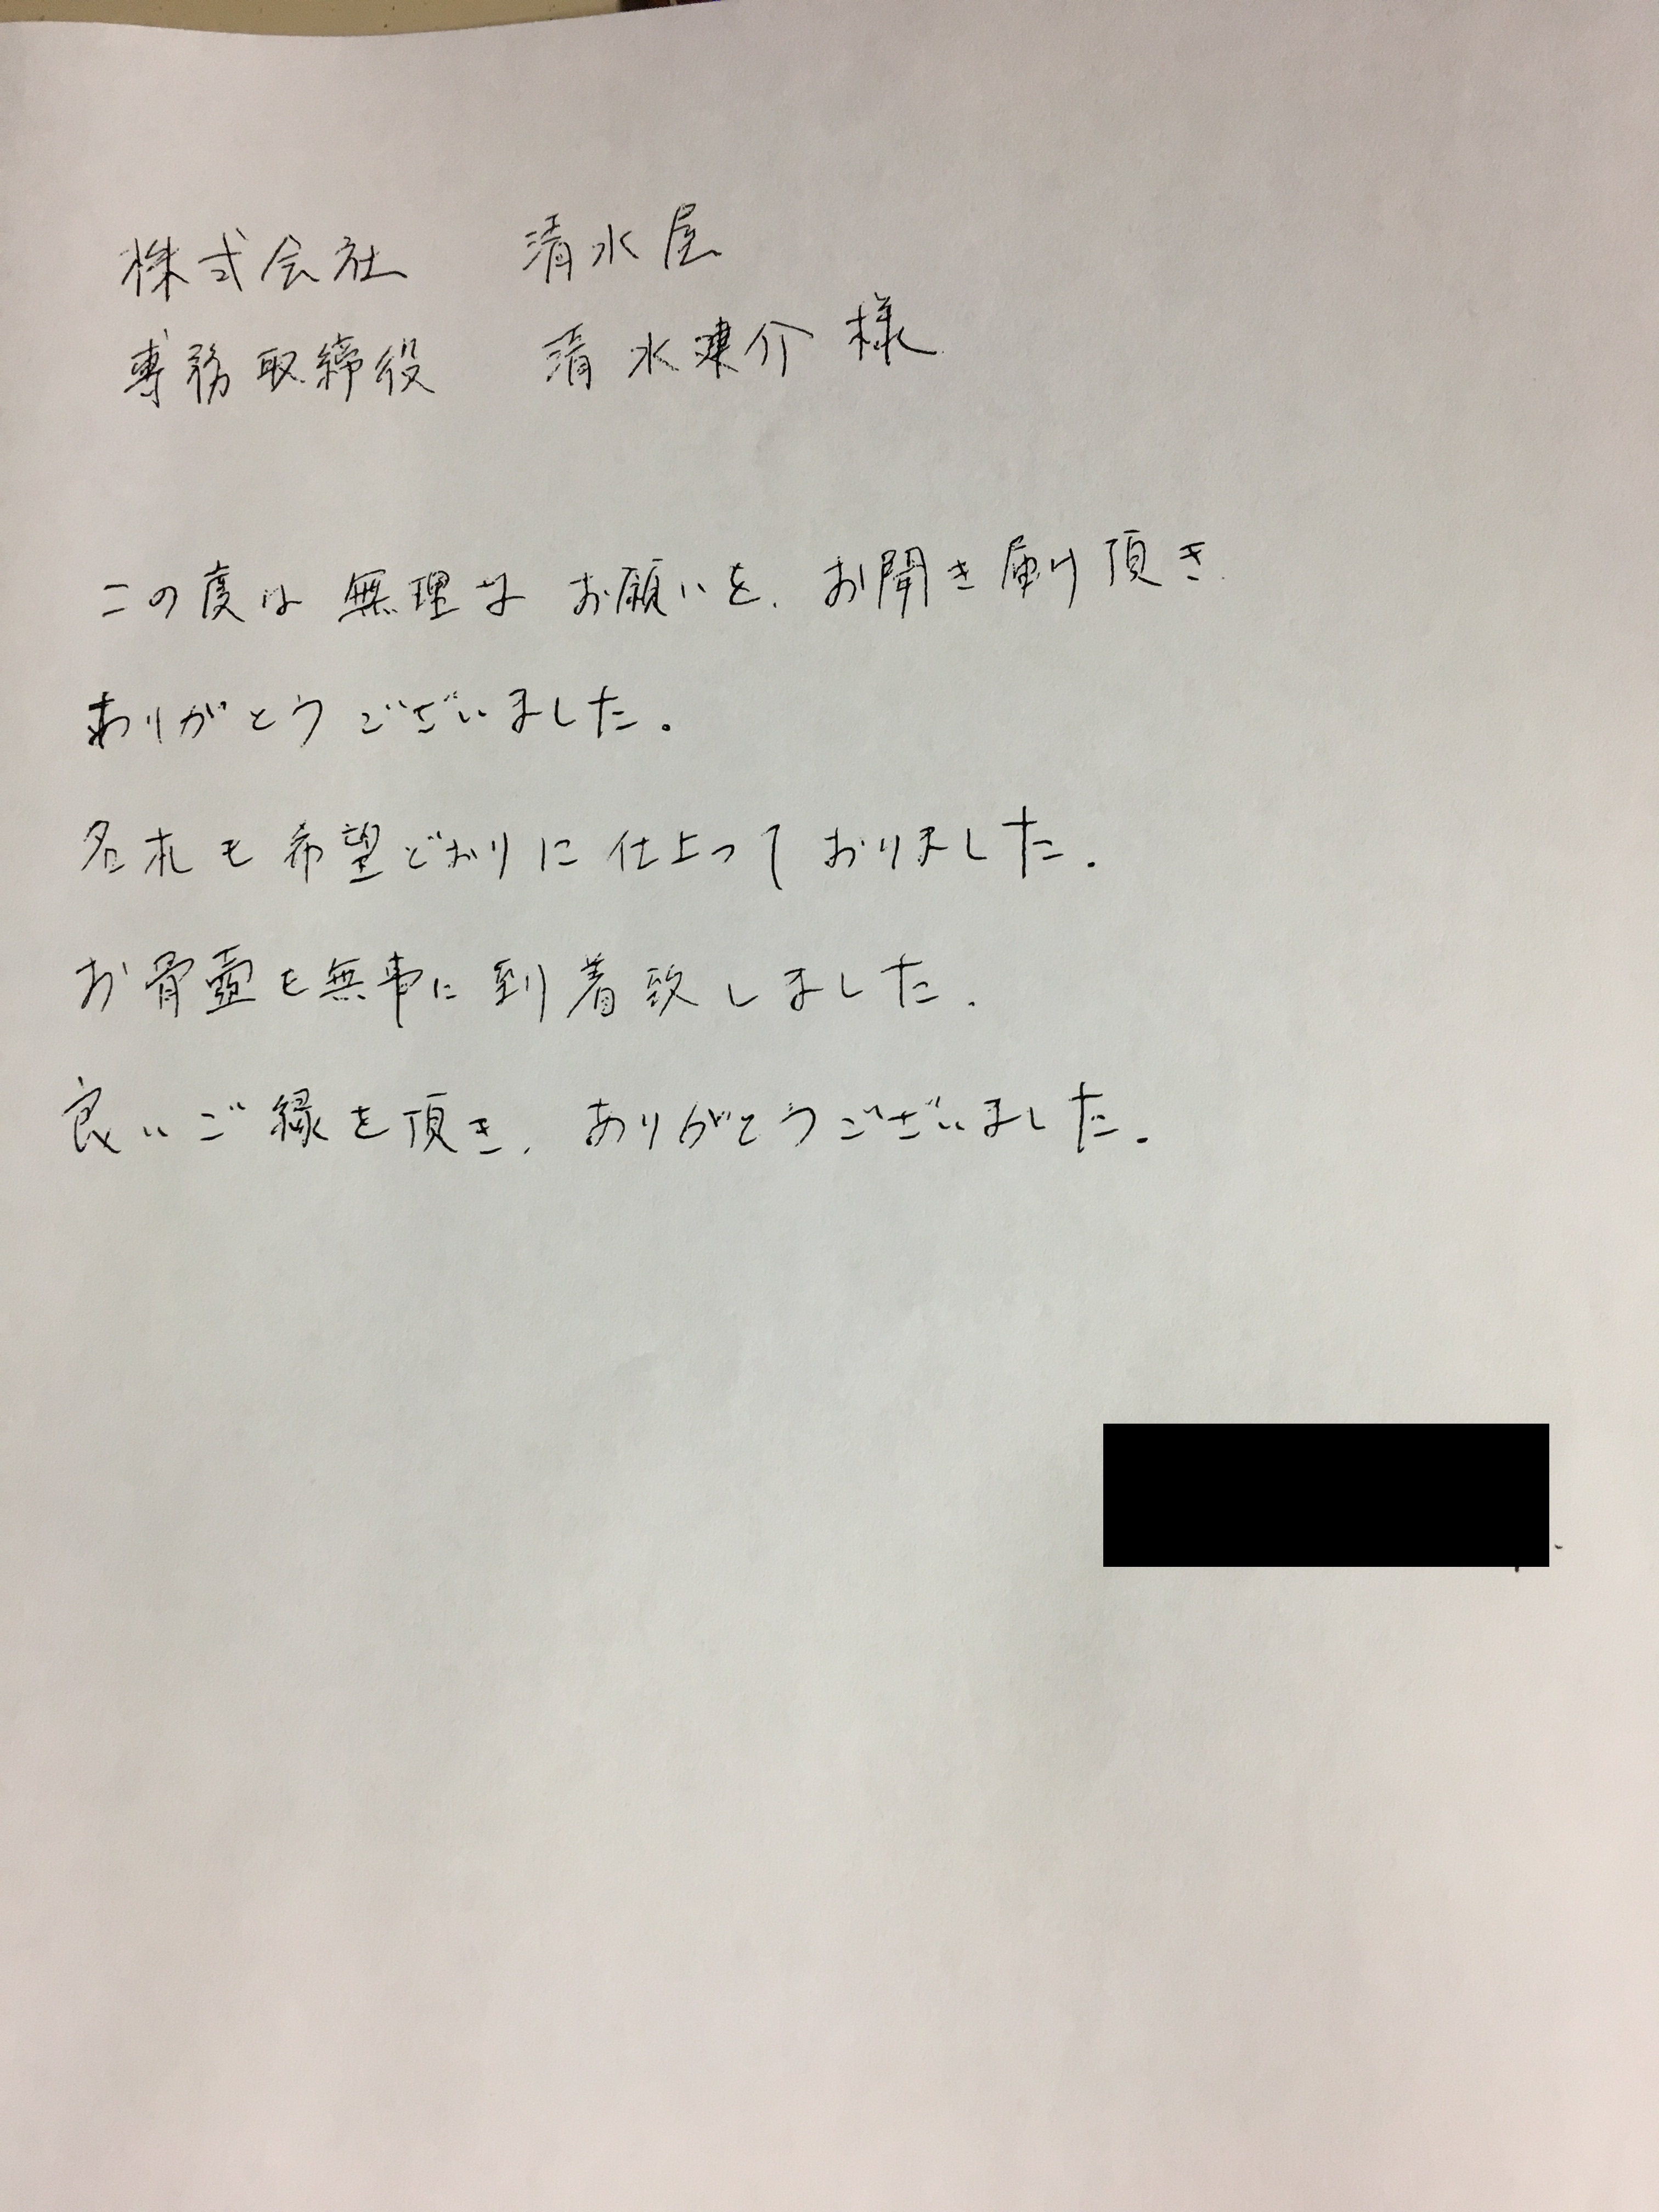 株式会社 清水屋
専務取締役 清水建介様
この度は無理なお願いを、お聞き届け頂き
ありがとうございました。
名札も希望どおりに仕上っておりました。
お骨壷も無事に到着致しました。
良いご縁を頂き、ありがとうございました。